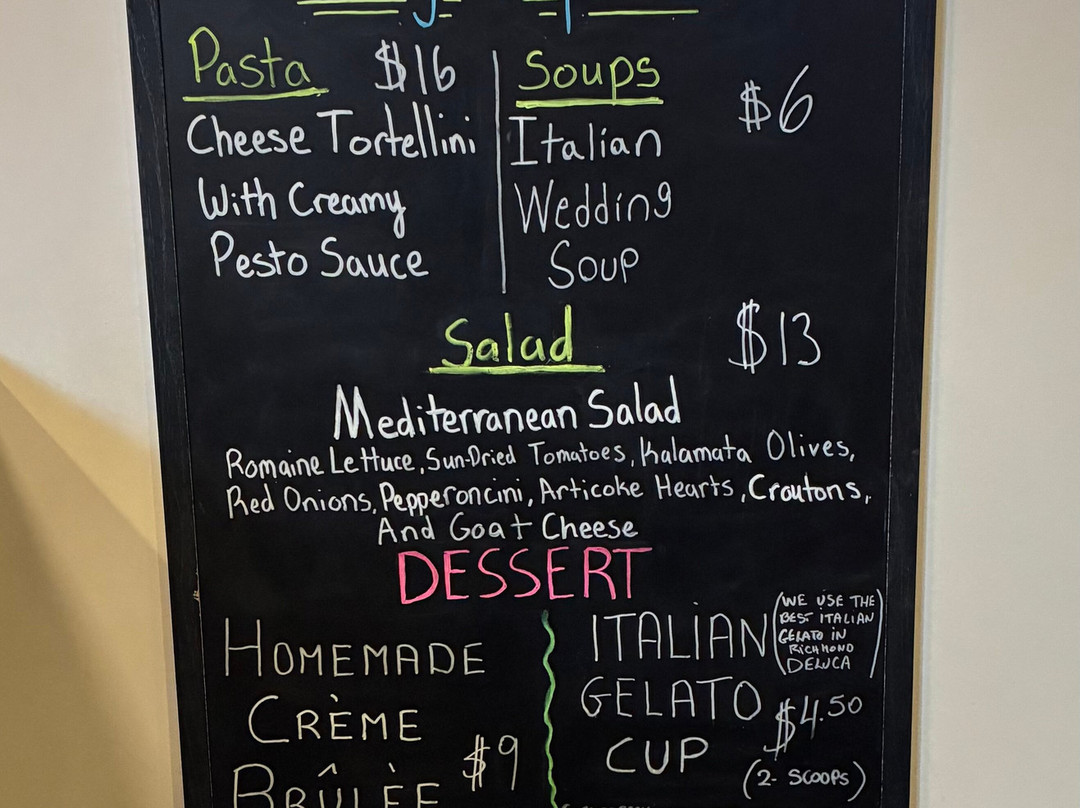 Pasta $16
Cheese Tortellini
With Creamy
Pesto Sauce
Soups $6
Italian
Wedding
Soup
Salad $13
Mediterranean Salad
Romaine Lettuce, Sun-Dried Tomatoes, Kalamata Olives,
Red Onions, Pepperoncini, Articoke Hearts, Croutons,
And Goat Cheese
DESSERT
HOMEMADE
CRÈME
BRÛLÈE $9
ITALIAN
GELATO $4.50
CUP
(2- SCOOPS)
(WE USE THE
BEST ITALIAN
GELATO IN
RICHMOND
DELUCA)